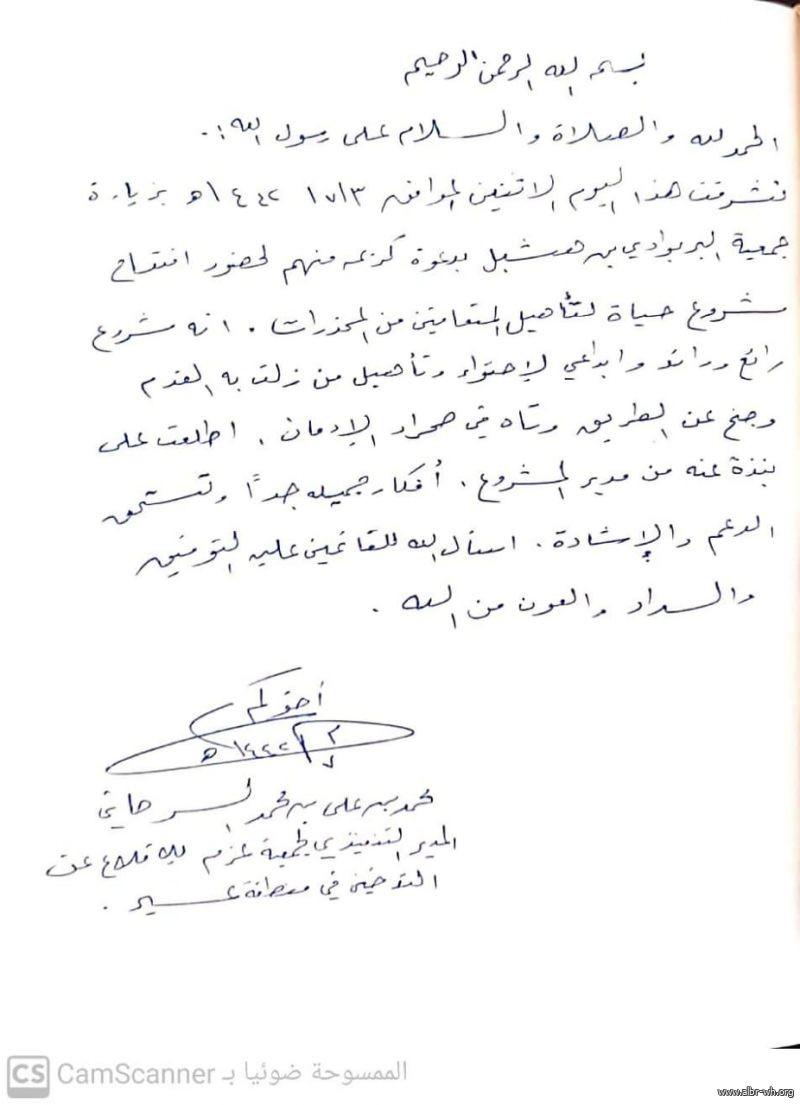 بسم الله الرحمن الرحيم
الحمد لله والصلاة والسلام على رسول الله :.
تشرفت هذا اليوم الاثنين الموافق ٧/٣/ ١٤٤٢هـ بزيارة
جمعية البر بوادي بن هشبل بدعوة كريمه منهم لحضور افتتاح
مشروع حياة لتأهيل المتعافين من المخدرات . انه مشروع
رائع ورائد وابداعي لإحتواء وتأهيل من زلت به القدم
وجنح عن الطريق وتاه في صحراء الإدمان . اطلعت على
نبذة عنه من مدير المشروع . أفكار جميله جداً وتستحق
الدعم والإشادة . اسأل الله للقائمين عليه التوفيق
والسداد والعون من الله .
أخوكم
٣/٧/١٤٤٢هـ
محمد بن علي بن محمد السرحاني
المدير التنفيذي لجمعية عزم للإقلاع عن
التدخين في منطقة عسير .
CS CamScanner الممسوحة ضوئيا بـ
www.albr-wh.org